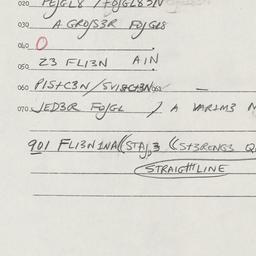 020 PEJGL8 / FOJGL83N
030 A GRO/S3R FOJGL8
040 O
050 Z3 FLI3N AIN
060 PIStC3N/SVIStC3N
070 JED3R FOJGL / A VARIM3
901 FLI3N INA((STAJD3 ((St3RENG3
STRAIGHT LINE